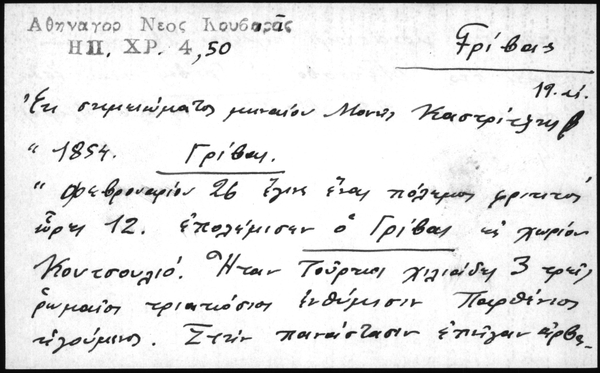 Αθηναγορ Νεος Κουβαρᾶς
ΗΠ. ΧΡ. 4,50
Γρίβας
19. αἰ.
Ἐκ σημειώματος μηναίου Μονῆς Καστρίτσης
" 1854. Γρίβας.
" Φεβρουαρίου 26 ἔγινε ἕνας πόλεμος φρικτός
ὧρες 12. ἐπολέμισεν ὁ Γρίβας εἰς χωρίον
Κουτσουλιό. Ἦταν Τοῦρκοι χιλιάδες 3 τρεῖς
ῥωμαῖοι τριακόσιοι ἐνθύμισιν Παρθένιος
ἡγούμενος. Στὴν πανάστασιν ἐπῆγαν ἀρβα-